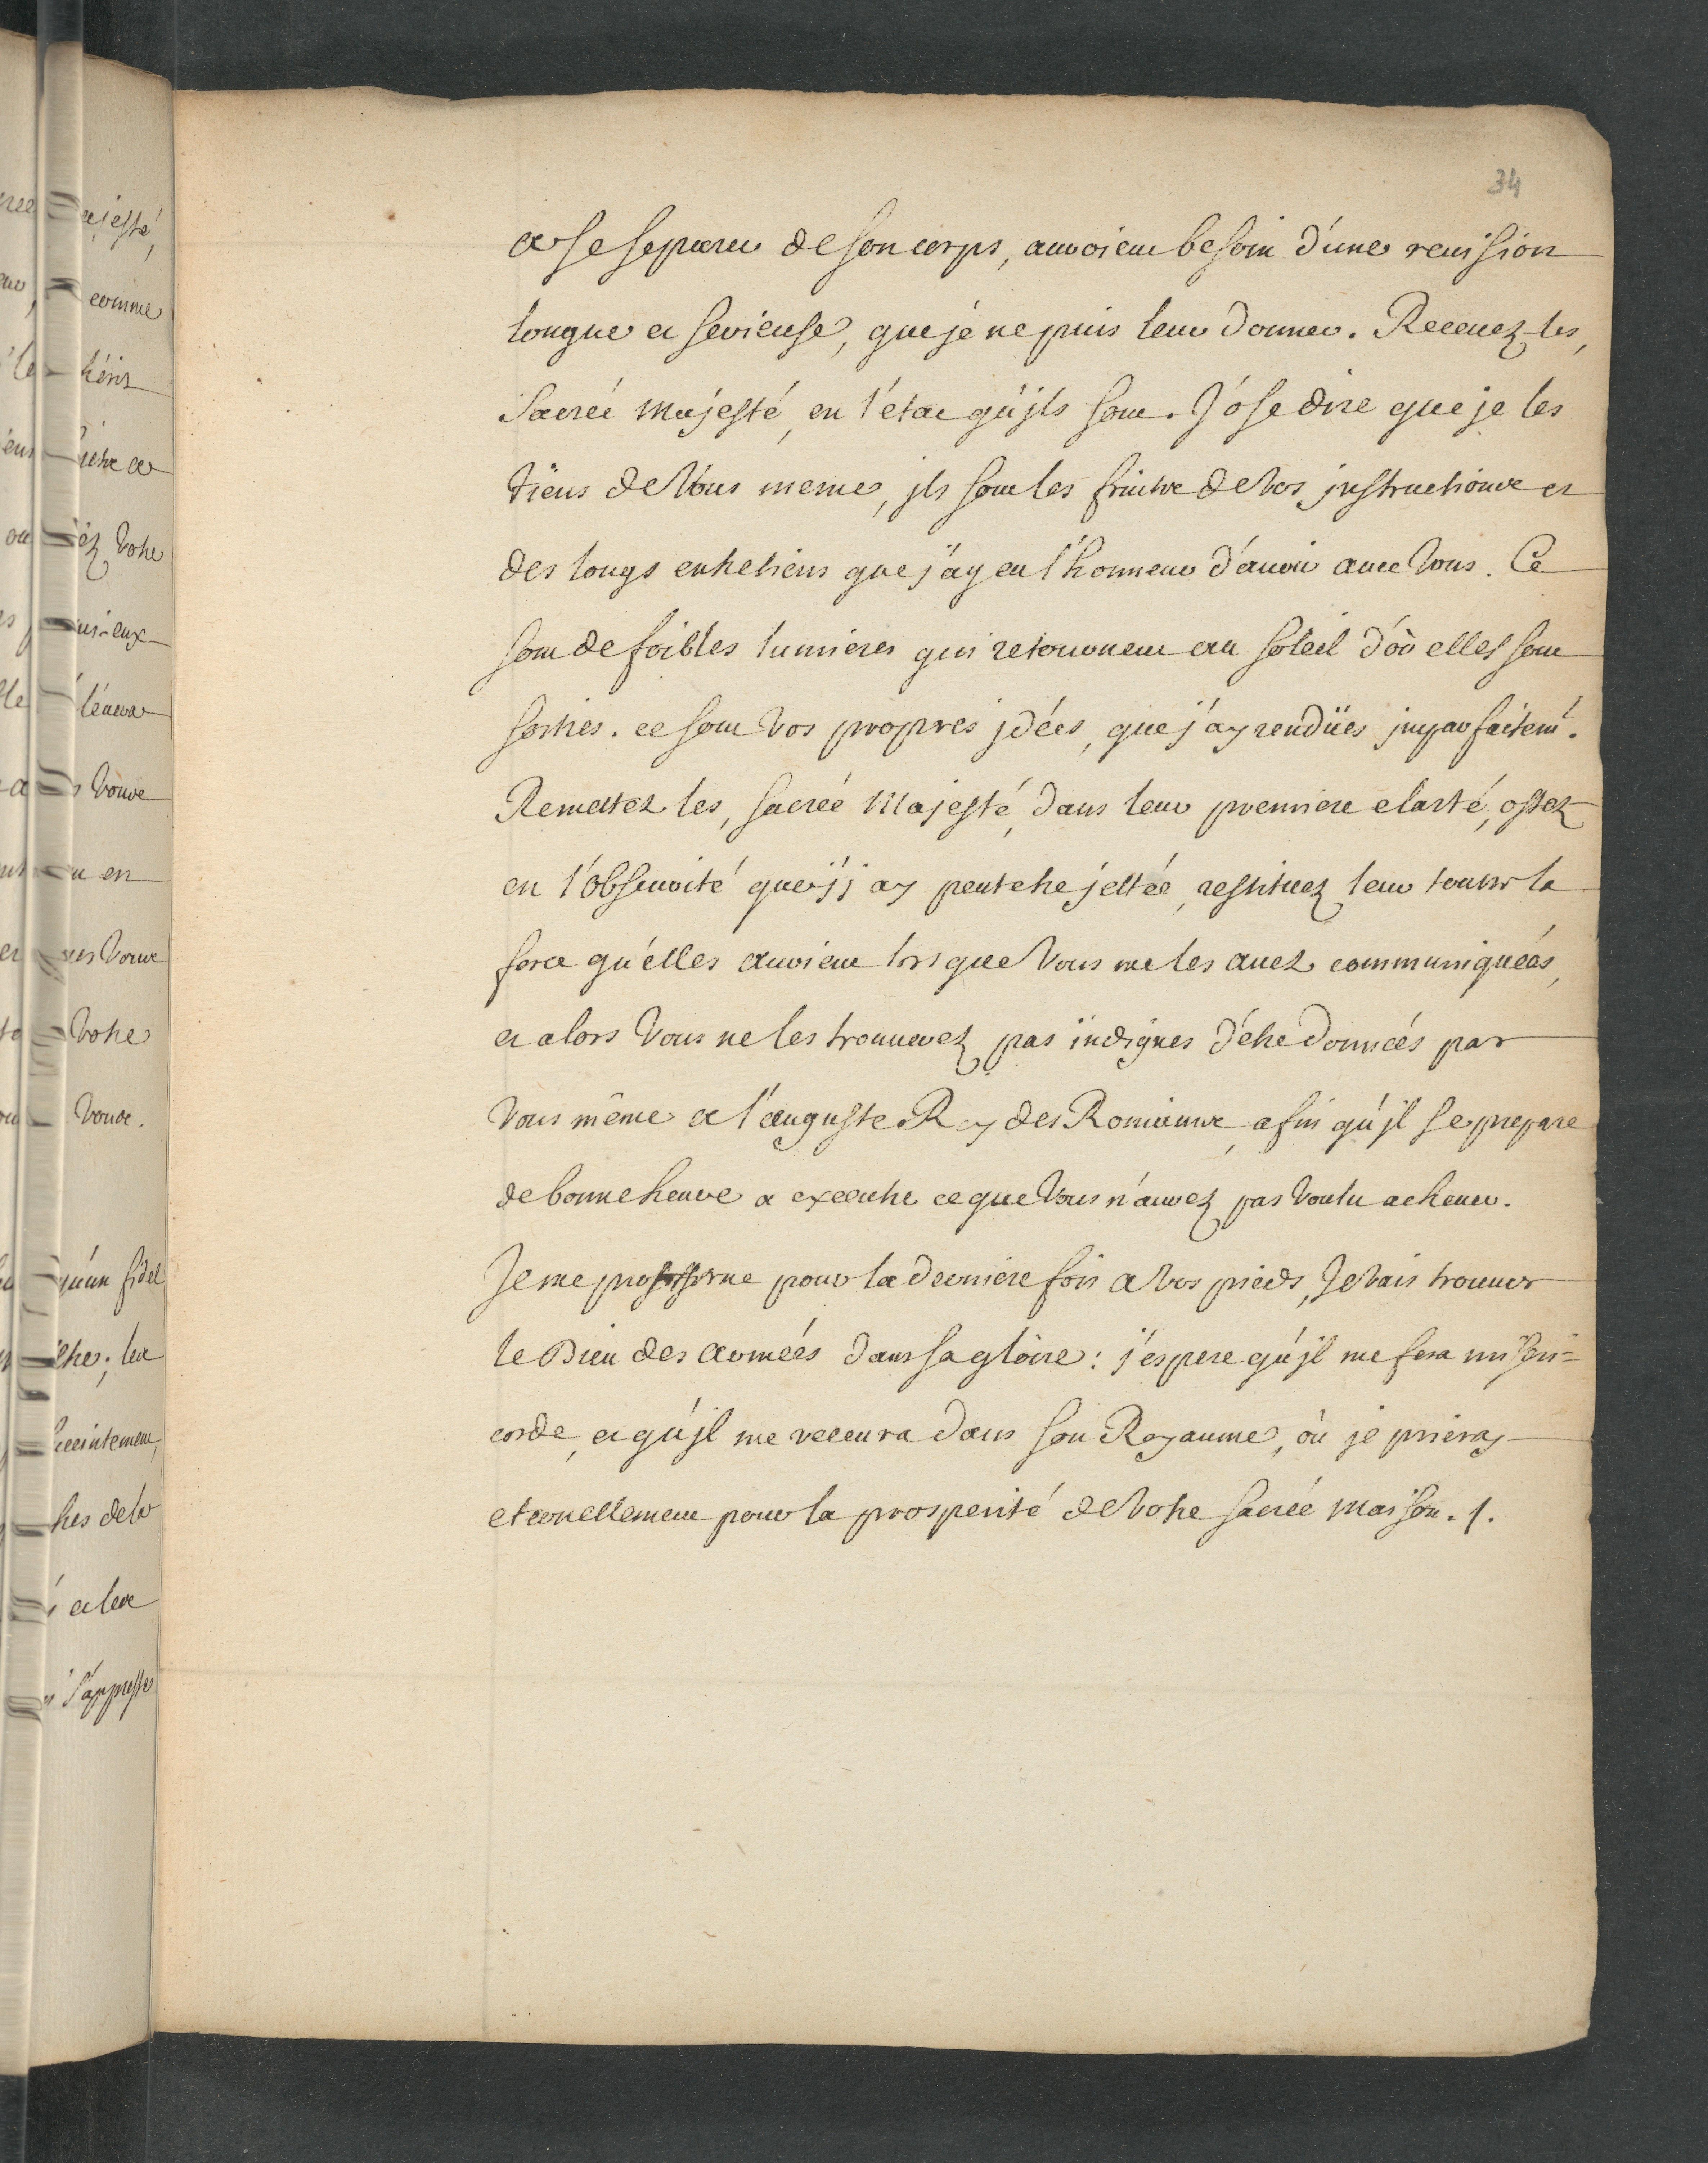 34
a se separer de son corps, auroient besoin d'une reuision
longue et serieuse, que je ne puis leur donner. Receuez-les,
Sacreé Majesté, en l'état qu'jls sont. J'ose dire que je les
tiens de Vous meme, jls sont les fruits de vos jnstructions et
des longs entretiens que j'ay eu l'honneur d'auoir auec Vous. Ce
sont de foibles lumieres qui retournent au soleil d'où elles sont
sorties. ce sont vos propres jdées, que j'ay rendües jmparfaitemt.
Remettez les, sacreé Majesté, dans leur premiere clarté, ostez
en l'obscurité que j'j ay peutetre jettée, restituez leur toutte la
force qu'elles auoient lorsque Vous me les auez communiqueés,
et alors Vous ne les trouuerez pas indignes d'etre donneés par
Vous même a l'auguste Roy des Romains, afin qu'jl se prepare
de bonne heure a executer ce que Vous n'aurez pas Voulu acheuer.
Je me prosterne pour la derniere fois a vos pieds, Je vais trouuer
le Dieu des armeés dans sa gloire: j'espere qu'jl me fera miseri=
corde, et qu'jl me receura dans son Royaume, où je prieray
eternellement pour la prosperité de Votre sacreé Maison. /.
ajesté,
comme
Votre
Votre
qu'un fidel
s'appreste